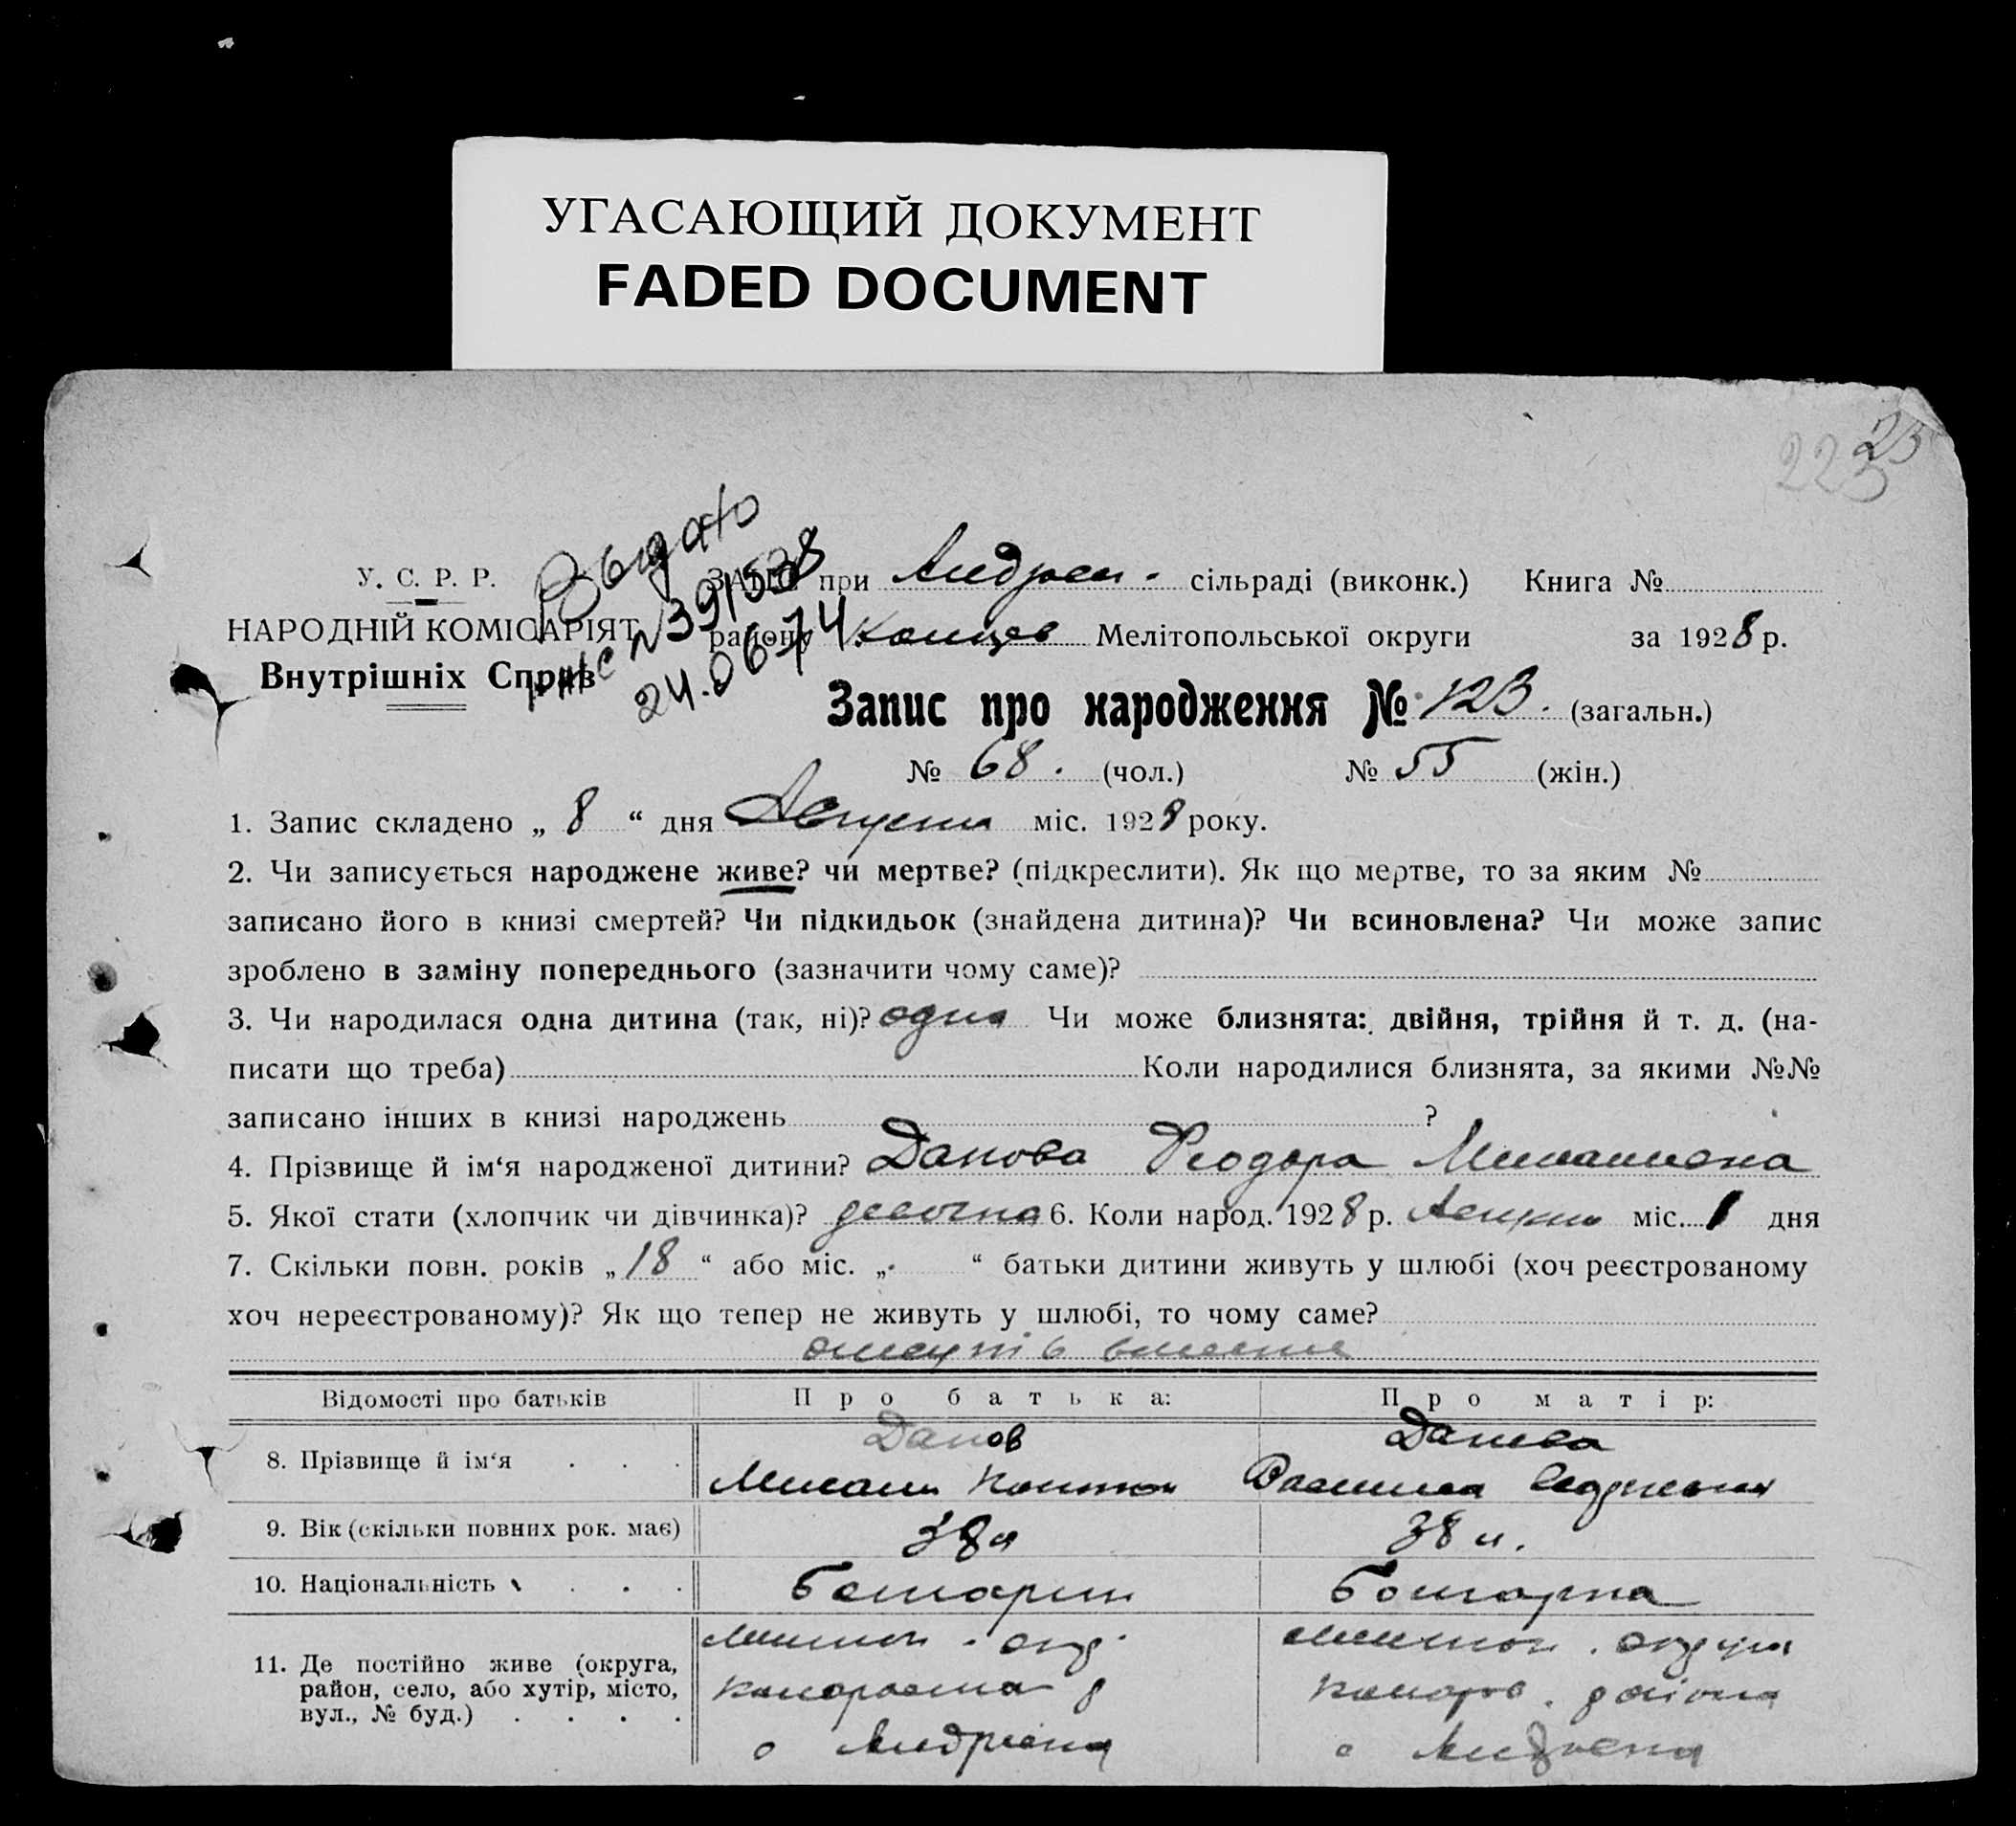 УГАСАЮЩИЙ ДОКУМЕНТ
FADED DOCUMENT
225
23
Выдано
№ 391538
24.06.74
У. С. Р. Р.
НАРОДНІЙ КОМІСАРІЯТ
Внутрішніх Справ
ЗАГС при Андреев. сільраді (виконк.) Книга №
району Мелітопольської округи за 1928 р.
Запис про народження № 123. (загальн.)
№ 68. (чол.) № 55 (жін.)
1. Запис складено „ 8 “ дня Августа міс. 1928 року.
2. Чи записується народжене живе? чи мертве? (підкреслити). Як що мертве, то за яким №
записано його в книзі смертей? Чи підкидьок (знайдена дитина)? Чи всиновлена? Чи може запис
зроблено в заміну попереднього (зазначити чому саме)?
3. Чи народилася одна дитина (так, ні)? одна Чи може близнята: двійня, трійня й т. д. (на-
писати що треба) Коли народилися близнята, за якими №№
записано інших в книзі народжень ?
4. Прізвище й ім‘я народженої дитини? Данова Феодора Михайловна
5. Якої стати (хлопчик чи дівчинка)? девочка 6. Коли народ. 1928 р. Августа міс. 1 дня
7. Скільки повн. років „ 18 “ або міс. „ “ батьки дитини живуть у шлюбі (хоч реєстрованому
хоч нереєстрованому)? Як що тепер не живуть у шлюбі, то чому саме?
Відомості про батьків Про батька: Про матір:
8. Прізвище й ім‘я . . . Данов Данова
Михаил Василиса
9. Вік (скільки повних рок. має) 38 38
10. Національність . . . Болгарин Болгарка
11. Де постійно живе (округа,
район, село, або хутір, місто,
вул., № буд.) . . . .